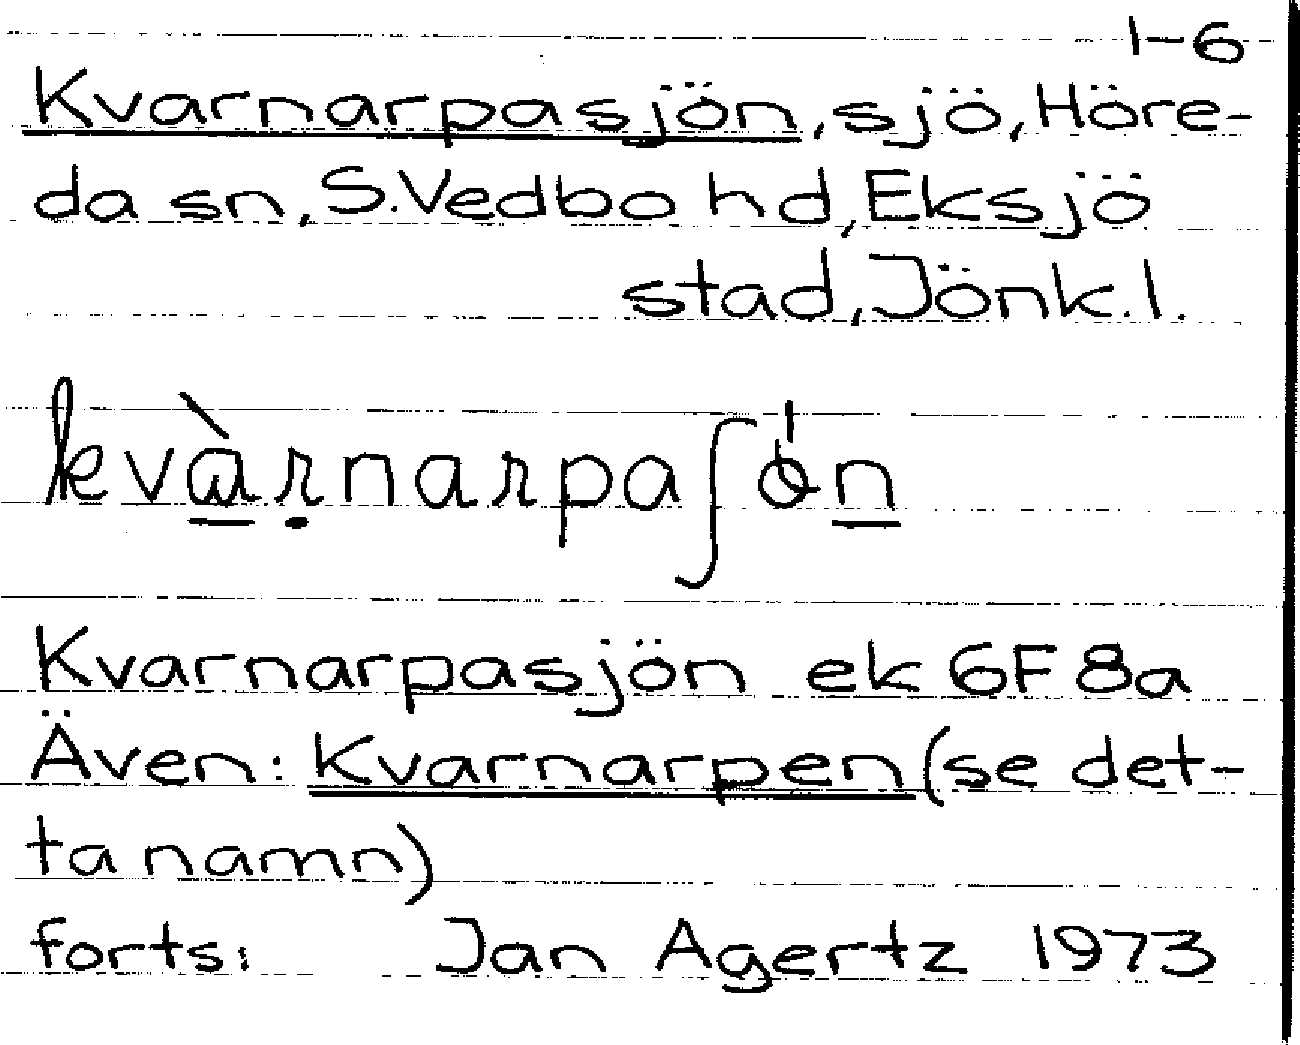 1-6
Kvarnarpasjön, sjö, Höre-
da sn, S. Vedbo hd, Eksjö
stad, Jönk. l.
kvàrnarpaʃön
Kvarnarpasjön ek 6F 8a
Även: Kvarnarpen (se det-
ta namn)
forts: Jan Agertz 1973